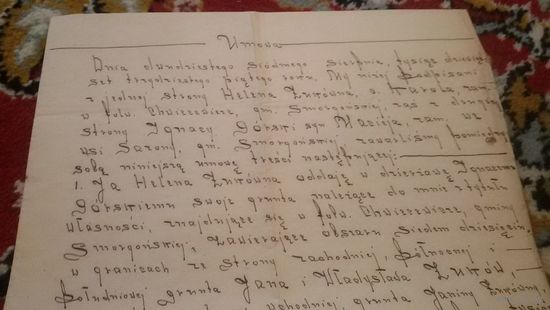 Umowa
Dnia dwudziestego siódmego sierpnia, tysiąc dziewięć-
set trzydziestego piątego roku, My niżej podpisani
z jednej strony Helena Żukówna, c. Karola, zam.
w folw. Chwieciewicze, gm. Smorgońskiej, zaś z drugiej
strony Ignacy Górski syn Macieja, zam. we
wsi Sarony, gm. Smorgońskiej zawarliśmy pomiędzy
sobą niniejszą umowę treści następującej:
1. Ja Helena Żukówna oddaję w dzierżawę Ignacemu
Górskiemu swoje grunta należące do mnie z tytułu
własności, znajdujące się w folw. gminy
Smorgońskiej, zawierające obszaru siedem dziesięcin,
w granicach ze strony zachodniej, północnej i
południowej grunta Jana i Władysława Żuków,
wschodniej, grunta Janiny Żukówny,